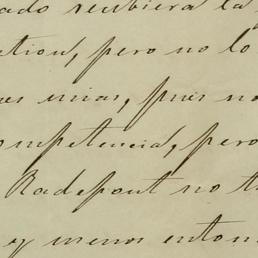 ado recibiera la
ation, pero no lo
es mias, pues no
ompetencia, pero
Radepont no t
y menos enton